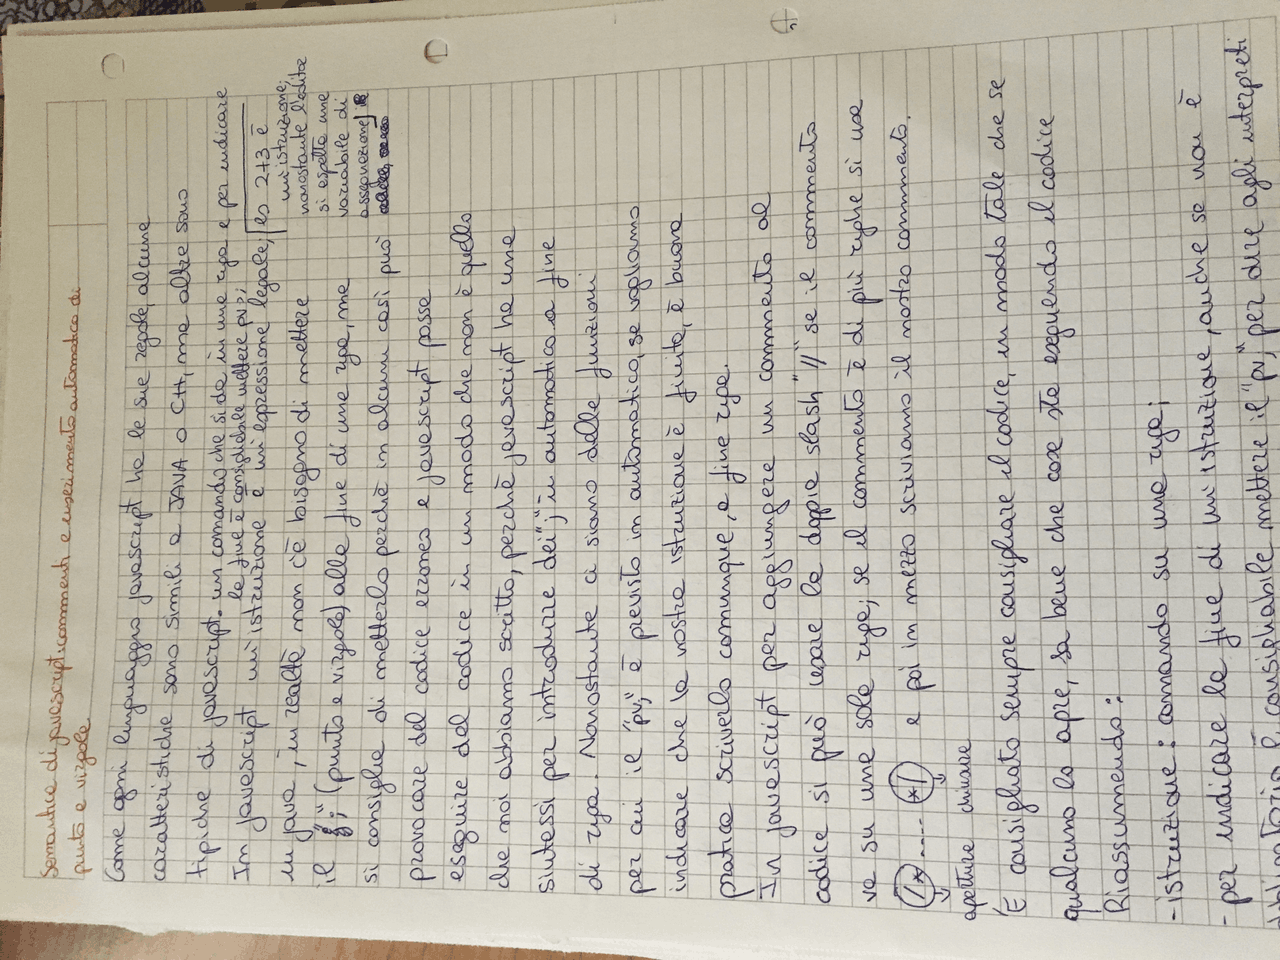 Semantica di javascript: commenti e inserimento automatico di
punto e virgola
Come ogni linguaggio javascript ha le sue regole, alcune
caratteristiche sono simili a JAVA o C++, ma altre sono
tipiche di javascript. un comando che si dà in una riga e per indicare
la fine è consigliabile mettere pv;
In javascript un'istruzione è un'espressione legale,
es 2+3 è
un'istruzione,
nonostante l'editor
si aspetta una
variabile di
assegnazione
in java, in realtà non c'è bisogno di mettere
il ";" (punto e virgola) alla fine di una riga, ma
si consiglia di metterlo perchè in alcuni casi può
provocare del codice erroneo e javascript possa
eseguire del codice in un modo che non è quello
che noi abbiamo scritto, perchè javascript ha una
sintassi per introdurre dei ";" in automatico a fine
di riga. Nonostante ci siano delle funzioni
per cui il "pv;" è previsto in automatico, se vogliamo
indicare che la nostra istruzione è finita, è buona
pratica scriverlo comunque, a fine riga.
In javascript per aggiungere un commento al
codice si può usare la doppia slash "//" se il commento
va su una sola riga; se il commento è di più righe si usa
/* ..... */ e poi in mezzo scriviamo il nostro commento.
apertura chiusura
É consigliato sempre consigliare il codice, in modo tale che se
qualcuno lo apre, sa bene che cosa sta eseguendo il codice
Riassumendo:
- istruzione: comando su una riga;
- per indicare la fine di un'istruzione, anche se non è
obbligatorio è consigliabile mettere il "pv;" per dire agli interpreti